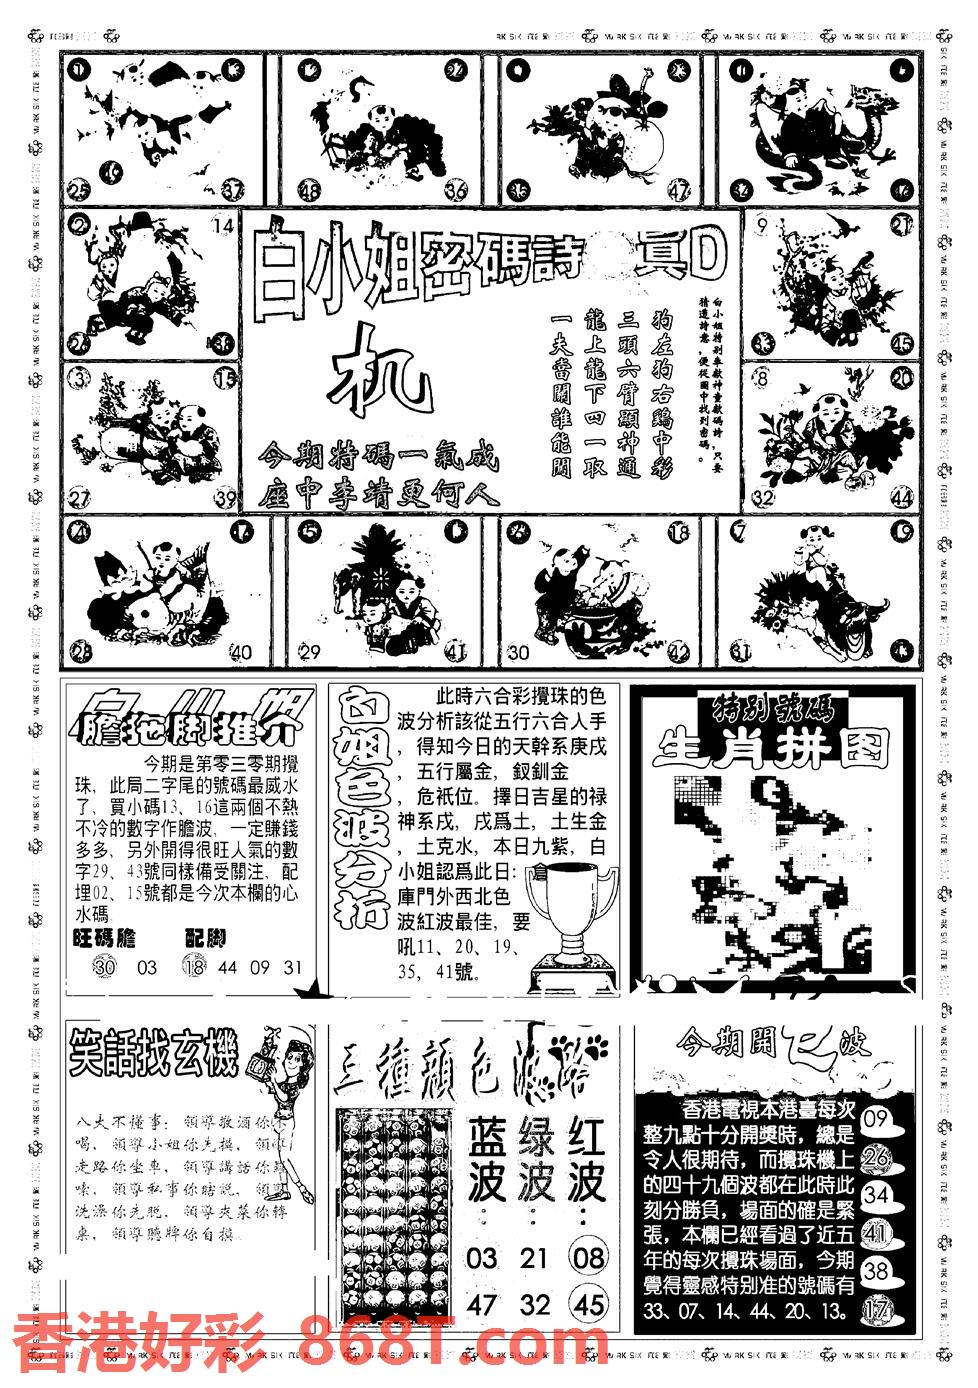 25
37
48
36
35
47
34
46
2
14
白小姐密碼詩
真D
9
21
机
狗左狗右鷄中彩
三頭六臂顯神通
龍上龍下四一取
一夫當關誰能閱
白小姐特别奉獻神童獻碼詩，只要
猜透詩意，便從圖中找到密碼。
26
38
33
45
3
15
8
20
今期特碼一氣成
座中李靖更何人
27
39
32
44
4
5
6
18
7
19
28
40
29
41
30
42
31
膽拖脚推介
今期是第零三零期攪
珠，此局二字尾的號碼最威水
了，買小碼13、16這兩個不熱
不冷的數字作膽波，一定賺錢
多多，另外開得很旺人氣的數
字29、43號同樣備受關注，配
埋02、15號都是今次本欄的心
水碼
旺碼膽 配脚
30 03 18 44 09 31
白姐色波分析
此時六合彩攪珠的色
波分析該從五行六合人手
，得知今日的天幹系庚戌
，五行屬金，釵釧金
，危衹位。擇日吉星的禄
神系戌，戌爲土，土生金
，土克水，本日九紫，白
小姐認爲此日：倉
庫門外西北色
波紅波最佳，要
吼11、20、19、
35，41號。
特别號碼
生肖拼图
笑話找玄機
八夫不懂事：領導敬酒你不
喝，領導小姐你先摸，領導
走路你坐車，領導講話你羅
嗦，領導私事你瞎説，領導
洗澡你先脱，領導夾菜你轉
桌，領導聽牌你自摸
三種顏色波路
蓝波：
绿波：
红波：
03 21 08
47 32 45
今期開七波
香港電視本港臺每次
整九點十分開獎時，總是
令人很期待，而攪珠機上
的四十九個波都在此時此
刻分勝負，場面的確是緊
張，本欄已經看過了近五
年的每次攪珠場面，今期
覺得靈感特别准的號碼有
33、07、14、44、20、13。
09
26
34
41
38
17
香港好彩 868T.com